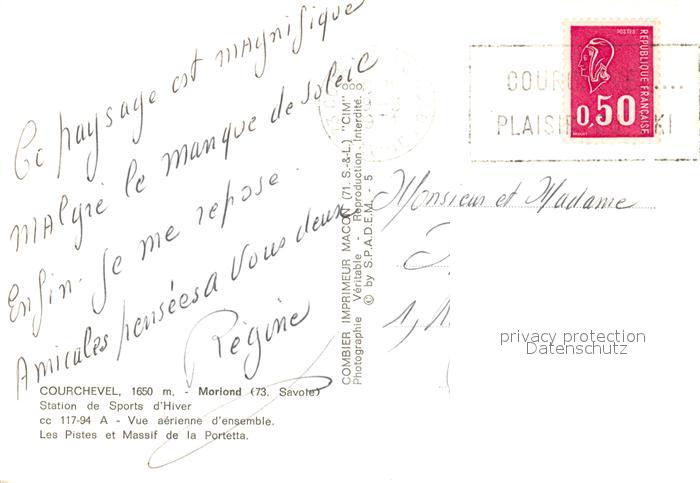 Ce paysage est magnifique
malgré le manque de soleil
Enfin. Je me repose.
Amicales pensées a vous deux
Régine
COURCHEVEL, 1650 m. - Moriond (73. Savoie)
Station de Sports d'Hiver
cc 117-94 A - Vue aérienne d'ensemble.
Les Pistes et Massif de la Portetta.
COMBIER IMPRIMEUR MACON (71. S.-&-L.) "CIM"
Photographie Véritable - Reproduction Interdite.
© by S.P.A.D.E.M. - 5
POSTES
REPUBLIQUE FRANÇAISE
0,50
COUR
PLAISI KI
Monsieur et Madame
privacy protection
Datenschutz